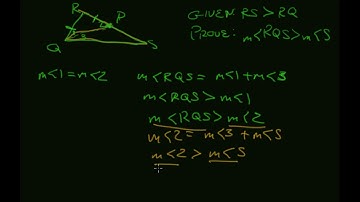 R
P
Q
S
1
2
3
GIVEN: RS > RQ
PROVE: m<RQS > m<S
m<1 = m<2
m<RQS = m<1 + m<3
m<RQS > m<1
m<RQS > m<2
m<2 = m<3 + m<S
m<2 > m<S